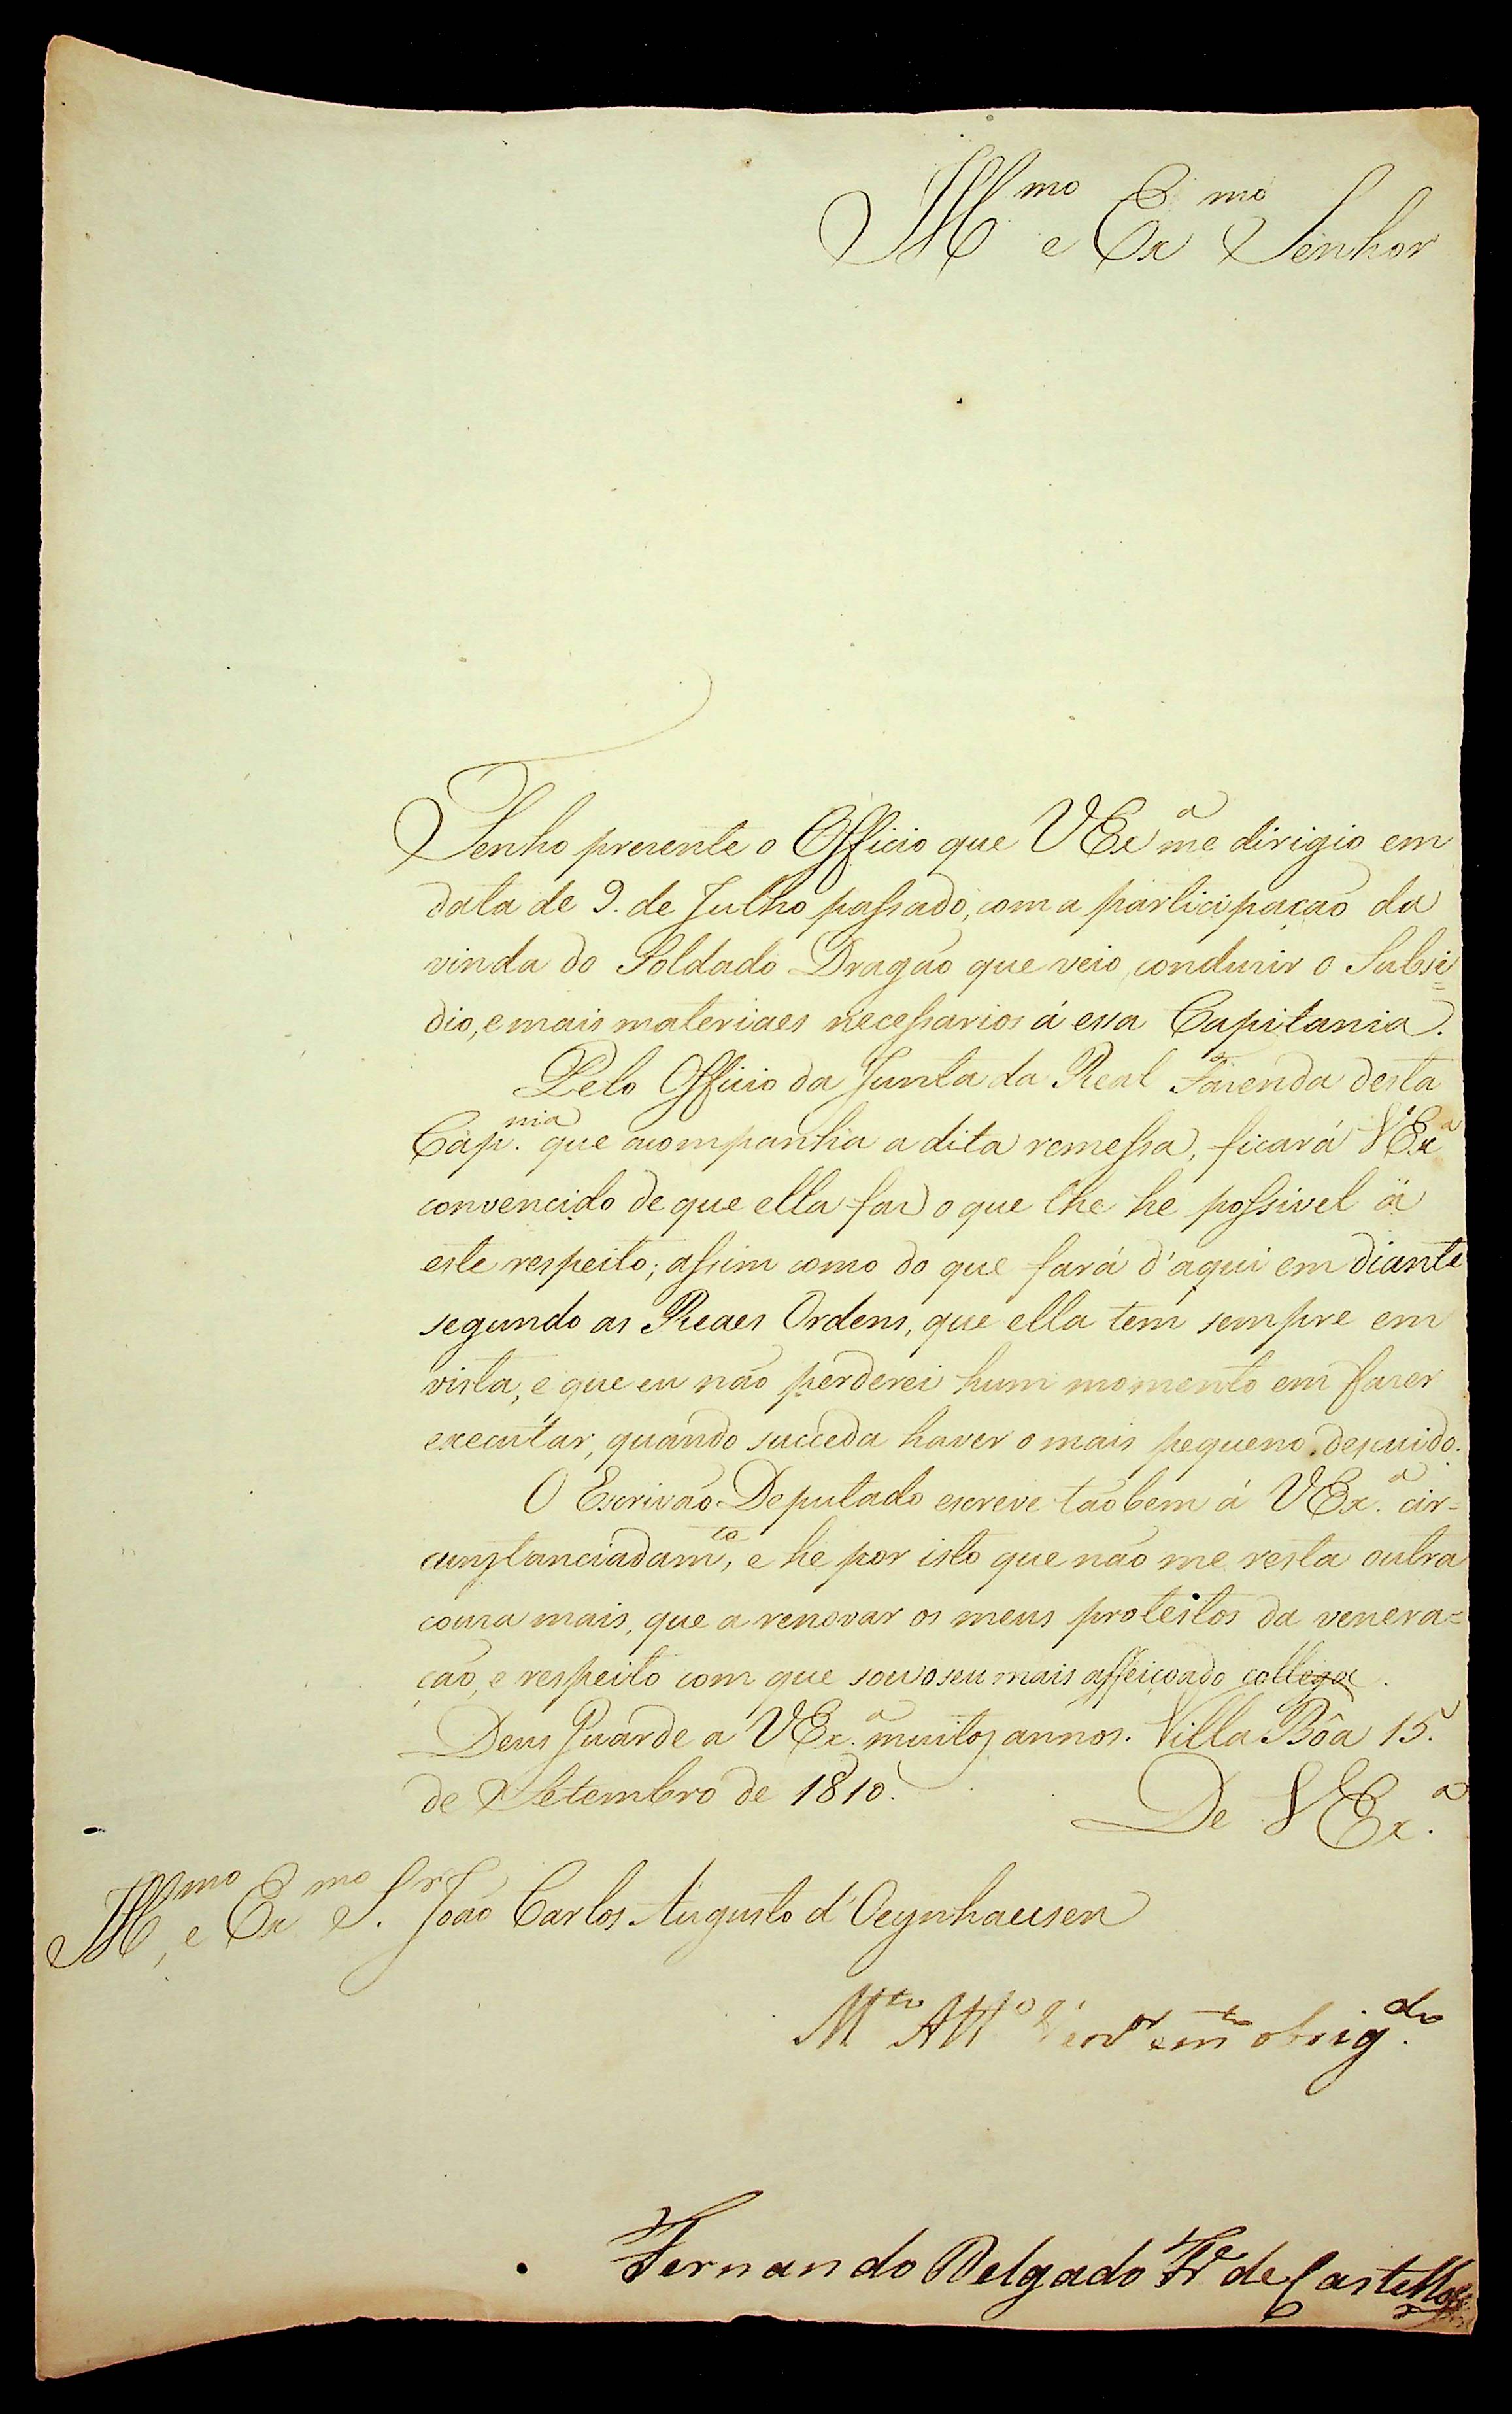 Ill.mo e Ex.mo Senhor
Tenho prezente o Officio que VEx.a me dirigio em
data de 9. de Julho passado, com a participação da
vinda do Soldado Dragão que veio conduzir o Subsi=
dio, e mais materiaes necessarios á essa Capitania.
Pelo Officio da Junta da Real Fazenda desta
Cap.nia que acompanha a dita remessa, ficará VEx.a
convencido de que ella faz o que lhe he possivel á
este respeito; assim como do que fará d'aqui em diante
segundo as Reaes Ordens, que ella tem sempre em
vista, e que eu não perderei hum momento em fazer
executar, quando succeda haver o mais pequeno descuido.
O Escrivão Deputado escreve tãobem á VEx.a cir=
cunstanciadam.te, e he por isto que não me resta outra
couza mais, que a renovar os meus protestos da venera=
ção, e respeito com que sou o seu mais affeiçoado collega.
Deus Guarde a VEx.a muitos annos. Villa Bôa 15.
de Setembro de 1810.
De VEx.a
Ill.mo e Ex.mo S.r João Carlos Augusto d'Oeynhausen
M.to Att.o obrig.do
Fernando Delgado Fr.e de Castilho